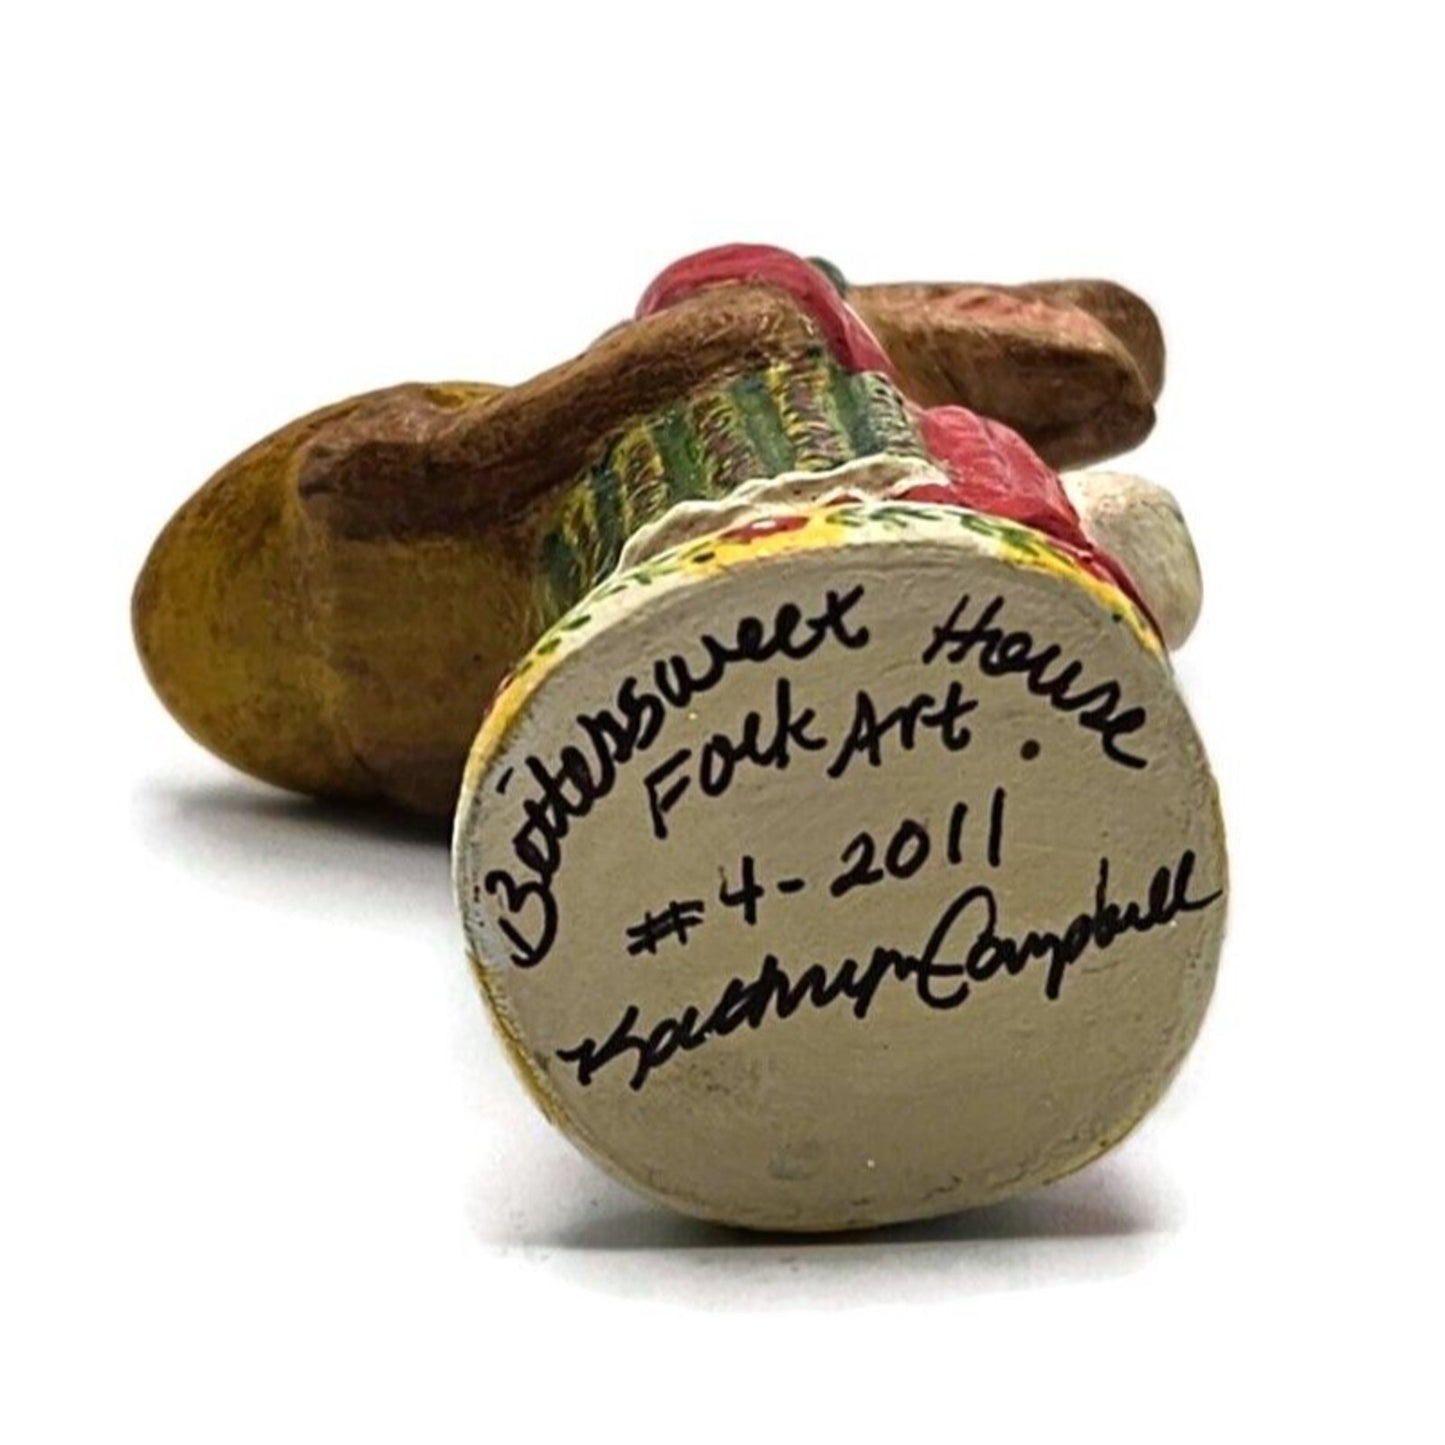 Bittersweet House
Folk Art.
#4-2011
Kathryn Campbell